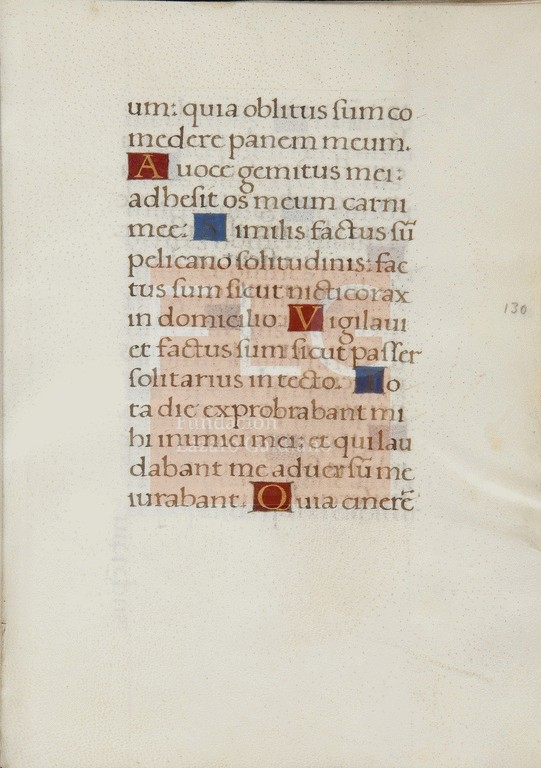 um: quia oblitus sum co
medere panem meum.
A uoce gemitus mei:
adhesit os meum carni
mee: Similis factus sū
pelicano solitudinis: fac
tus sum sicut nicticorax
in domicilio. Vigilaui
et factus sum sicut passer
solitarius in tecto. To
ta die exprobrabant mi
hi inimici mei: et qui lau
dabant me aduersū me
iurabant. Quia cinerē
130
Fundación
Lázaro Galdiano